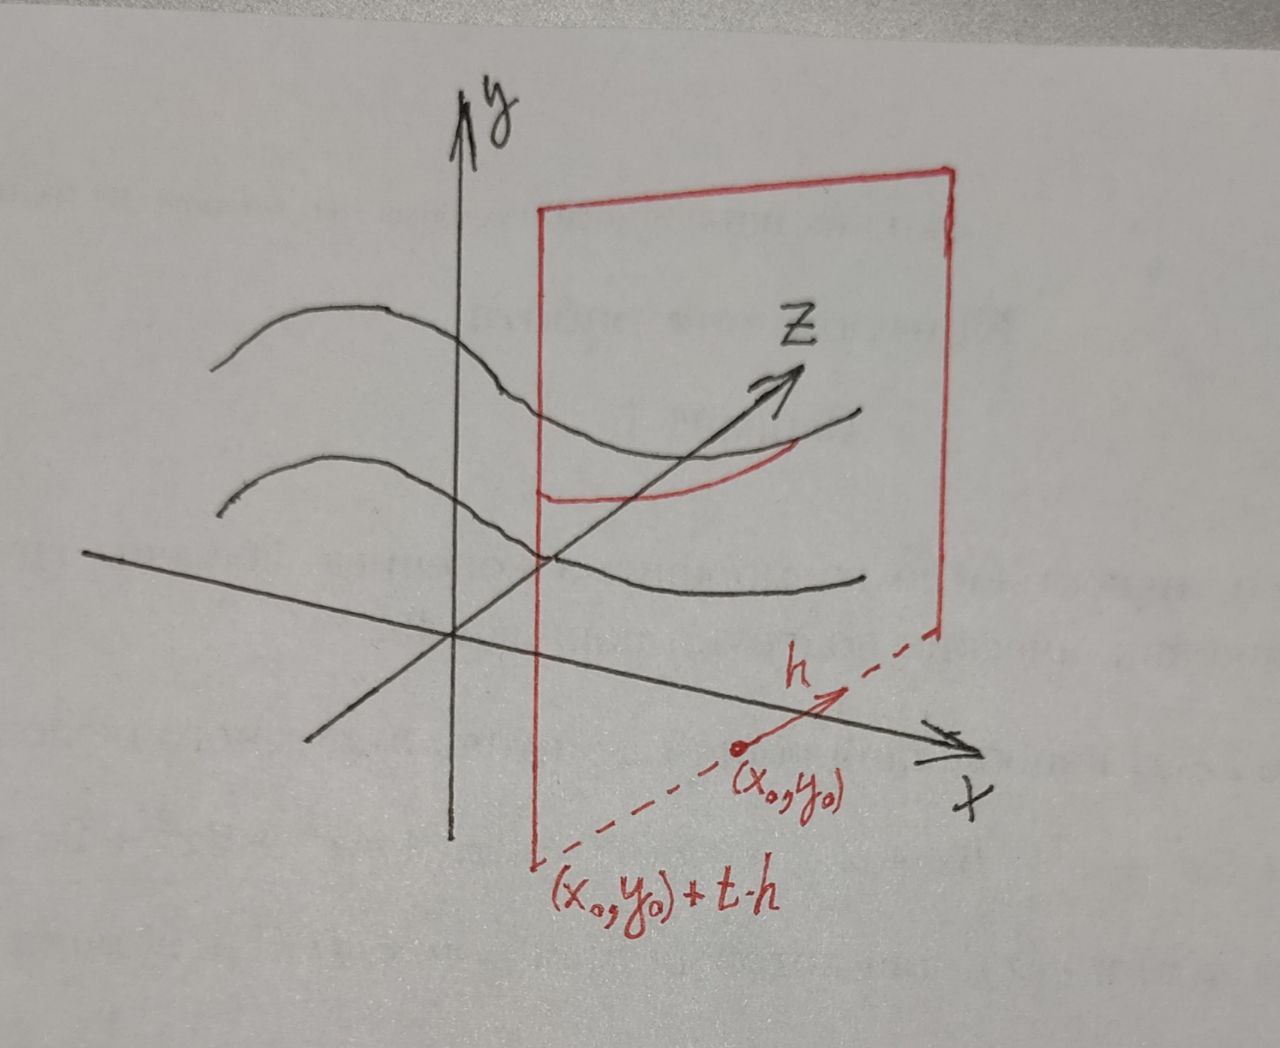 y
z
h
(x₀,y₀)
x
(x₀,y₀) + t·h